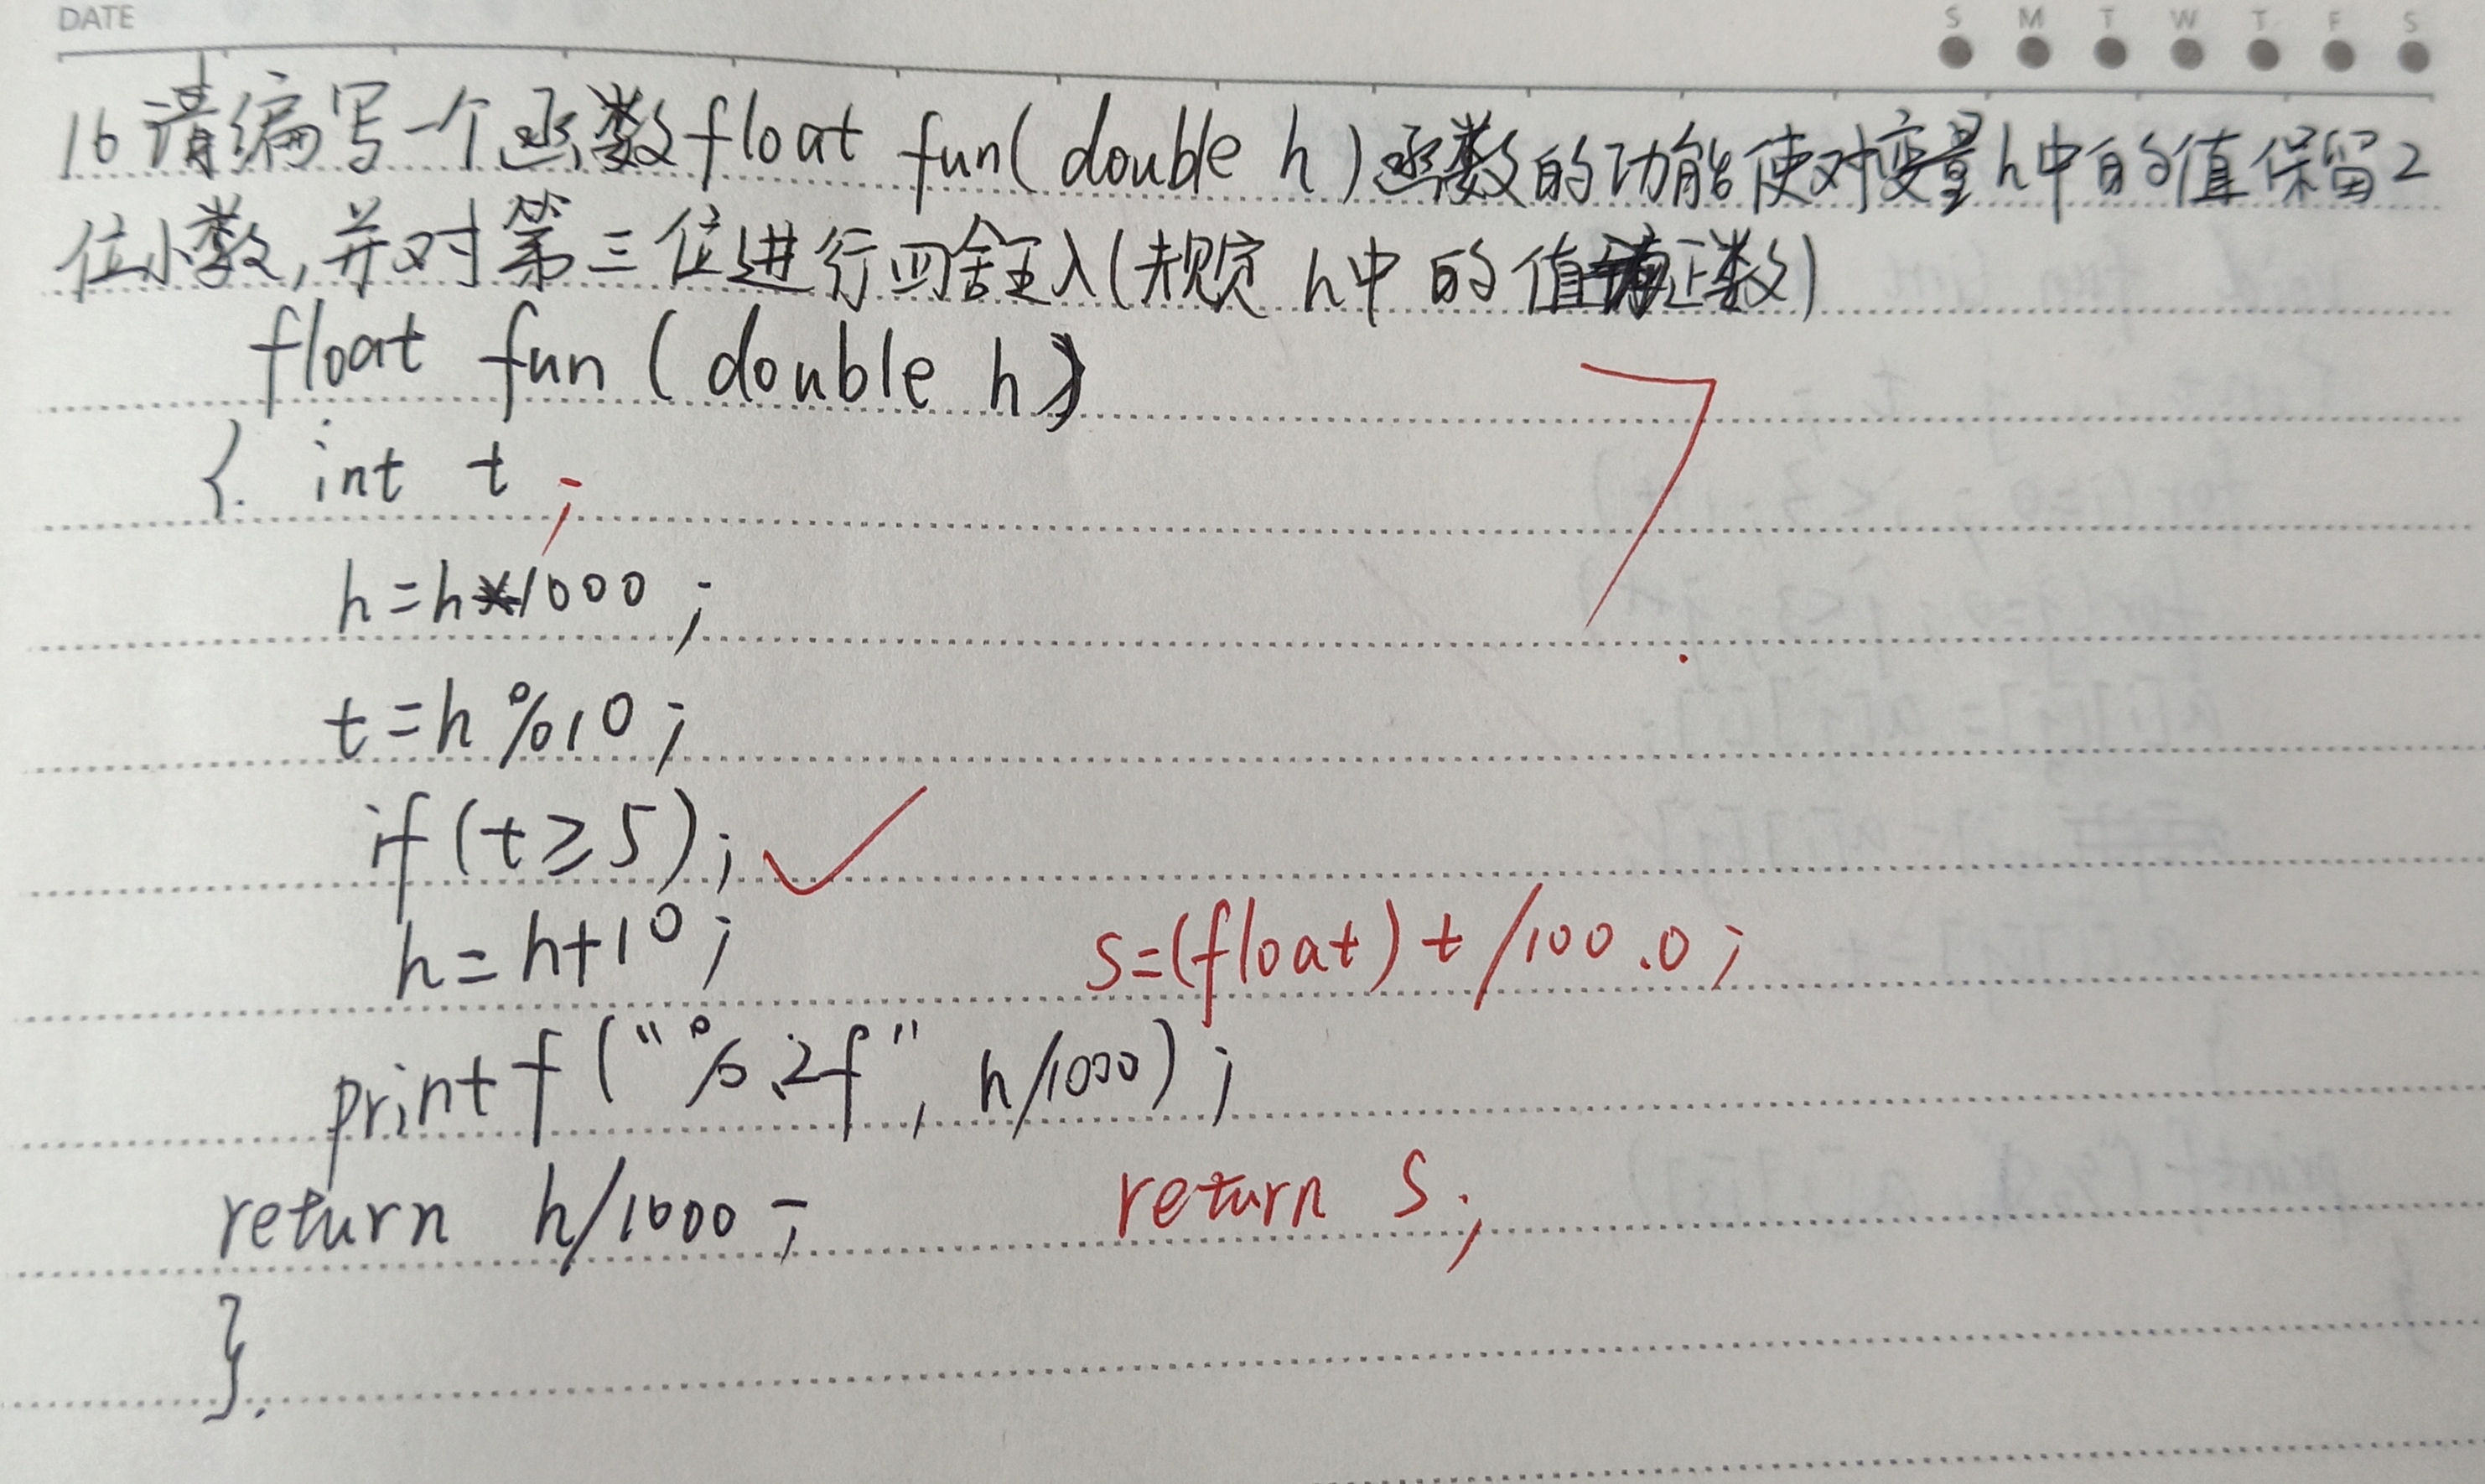 DATE
S M T W T F S
16请编写一个函数float fun(double h)函数的功能使对变量h中的值保留2
位小数,并对第三位进行四舍五入(规定h中的值为正数)
float fun(double h)
{ int t;
h=h*1000;
t=h%10;
if(t≥5);
h=h+10; s=(float)t/100.0;
printf("%.2f",h/1000);
return h/1000; return s;
}.